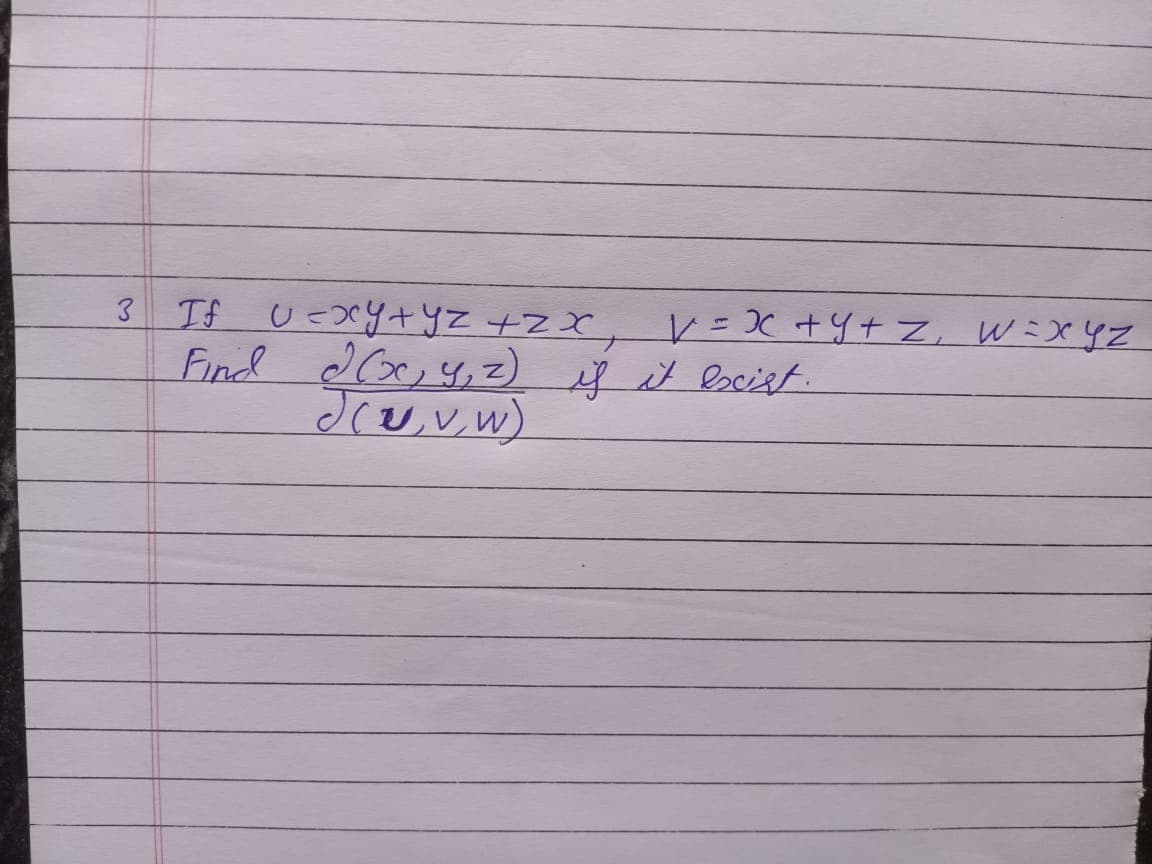 3 If U=xy+yz+zx, V=x+y+z, W=xyz
Find ∂(x,y,z) if it excist.
∂(u,v,w)